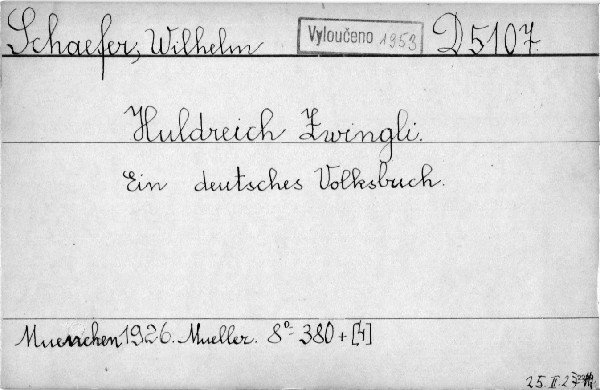 Schaefer, Wilhelm Vyloučeno 1953 D 5107.
Huldreich Zwingli.
Ein deutsches Volksbuch.
Muenchen 1926. Mueller. 8° 380 + [4]
25. II. 27